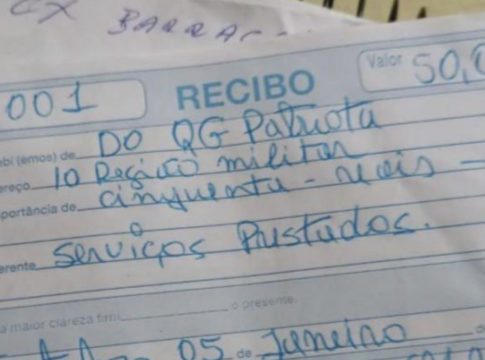 CX BARRAC
001 RECIBO Valor 50,0
ebi (emos) de DO QG Patriota
ereço 10 Região militar
portância de cinquenta - reais -
erente serviços Prestados.
a maior clareza firm o presente.
05 de Janeiro d